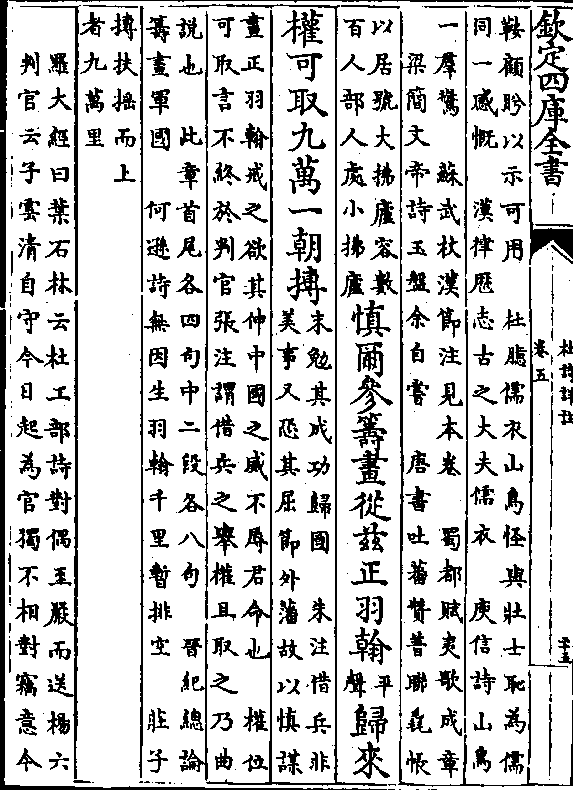 欽定四庫全書
杜詩詳註
卷五
二十五
鞍顧眄以示可用　杜臆儒衣山鳥怪與壯士恥為儒
同一感慨　漢律歷志古之大夫儒衣　庾信詩山鳥
一羣驚　蘇武杖漢節注見本卷　蜀都賦夷歌成章
梁簡文帝詩玉盤余自嘗　唐書吐蕃贊普聯毳帳
以居號大拂廬容數
百人部人處小拂廬
慎爾參籌畫從茲正羽翰
平
聲
歸來
權可取九萬一朝摶
末勉其成功歸國　朱注借兵非
美事又恐其屈節外藩故以慎謀
畫正羽翰戒之欲其伸中國之威不辱君命也　權位
可取言不終於判官張注謂借兵之舉權且取之乃曲
說也　此章首尾各四句中二段各八句　晉紀總論
籌畫軍國　何遜詩無因生羽翰千里暫排空　莊子
摶扶搖而上
者九萬里
羅大經曰葉石林云杜工部詩對偶至嚴而送楊六
判官云子雲清自守今日起為官獨不相對竊意今